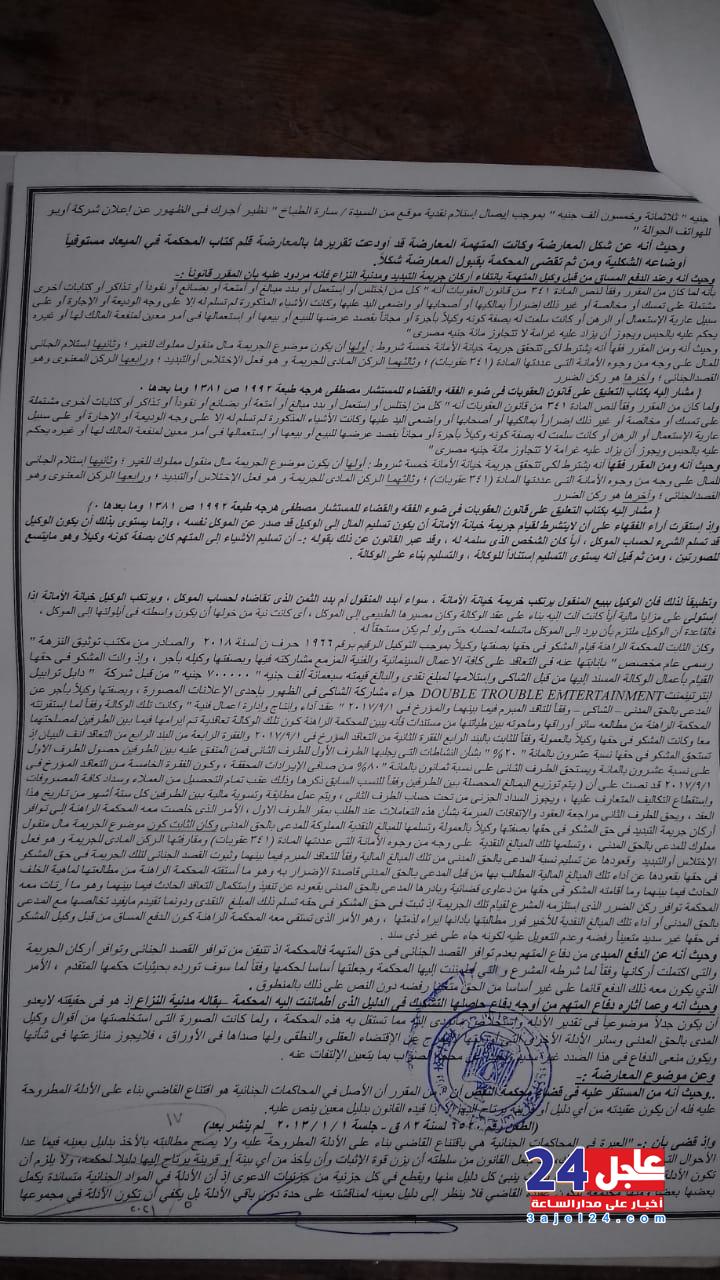 جنيه " ثلاثمائة وخمسون ألف جنيه " بموجب إيصال إستلام نقدية موقع من السيدة / سارة الطباخ " نظير أجرك فى الظهور عن إعلان شركة أوبو
للهواتف الجوالة "
وحيث أنه عن شكل المعارضة وكانت المتهمة المعارضة قد أودعت تقريرها بالمعارضة قلم كتاب المحكمة فى الميعاد مستوفياً
أوضاعه الشكلية ومن ثم تقضى المحكمة بقبول المعارضة شكلاً.
وحيث أنه وعند الدفع المساق من قبل وكيل المتهمة بانتفاء أركان جريمة التبديد ومدنية النزاع فأنه مردود عليه بأن المقرر قانوناً :-
بأنه لما كان من المقرر وفقاً لنص المادة ٣٤١ من قانون العقوبات أنه " كل من إختلس أو إستعمل أو بدد مبالغ أو أمتعة أو بضائع أو نقوداً أو تذاكر أو كتابات أخرى
مشتملة على تمسك أو مخالصة أو غير ذلك إضراراً بمالكيها أو أصحابها أو واضعى اليد عليها وكانت الأشياء المذكورة لم تسلم له إلا على وجه الوديعة أو الإجارة أو على
سبيل عارية الإستعمال أو الرهن أو كانت سلمت له بصفة كونه وكيلاً بأجرة أو مجاناً بقصد عرضها للبيع أو بيعها أو إستعمالها فى أمر معين لمنفعة المالك لها أو غيره
يحكم عليه بالحبس ويجوز أن يزاد عليه غرامة لا تتجاوز مائة جنيه مصرى "
وحيث أنه ومن المقرر فقهاً أنه يشترط لكى تتحقق جريمة خيانة الأمانة خمسة شروط : أولها أن يكون موضوع الجريمة مال منقول مملوك للغير ؛ وثانيها إستلام الجانى
للمال على وجه من وجوه الأمانة التى عددتها المادة (٣٤١ عقوبات) ؛ وثالثهما الركن المادى للجريمة و هو فعل الإختلاس أوالتبديد ؛ ورابعها الركن المعنوى وهو
القصدالجنائى ؛ وآخرها هو ركن الضرر
{ مشار إليه بكتاب التعليق على قانون العقوبات فى ضوء الفقه والقضاء للمستشار مصطفى هرجه طبعة ١٩٩٢ ص ١٣٨١ وما بعدها ٠}
ولما كان من المقرر وفقاً لنص المادة ٣٤١ من قانون العقوبات أنه " كل من إختلس أو إستعمل أو بدد مبالغ أو أمتعة أو بضائع أو نقوداً أو تذاكر أو كتابات أخرى مشتملة
على تمسك أو مخالصة أو غير ذلك إضراراً بمالكيها أو أصحابها أو واضعى اليد عليها وكانت الأشياء المذكورة لم تسلم له إلا على وجه الوديعة أو الإجارة أو على سبيل
عارية الإستعمال أو الرهن أو كانت سلمت له بصفة كونه وكيلاً بأجرة أو مجاناً بقصد عرضها للبيع أو بيعها أو إستعمالها فى أمر معين لمنفعة المالك لها أو غيره يحكم
عليه بالحبس ويجوز أن يزاد عليه غرامة لا تتجاوز مائة جنيه مصرى "
وحيث أنه ومن المقرر فقها أنه يشترط لكى تتحقق جريمة خيانة الأمانة خمسة شروط : أولها أن يكون موضوع الجريمة مال منقول مملوك للغير ؛ وثانيها إستلام الجانى
للمال على وجه من وجوه الأمانة التى عددتها المادة (٣٤١ عقوبات) ؛ وثالثهما الركن المادى للجريمة و هو فعل الإختلاس أوالتبديد ؛ ورابعها الركن المعنوى وهو
القصدالجنائى ؛ وآخرها هو ركن الضرر
{ مشار إليه بكتاب التعليق على قانون العقوبات فى ضوء الفقه والقضاء للمستشار مصطفى هرجه طبعة ١٩٩٢ ص ١٣٨١ وما بعدها ٠}
وإذ إستقرت آراء الفقهاء على أن لايشترط لقيام جريمة خيانة الأمانة أن يكون تسليم المال إلى الوكيل قد صدر عن الموكل نفسه ، وإنما يستوى بذلك أن يكون الوكيل
قد تسلم الشىء لحساب الموكل ، أياً كان الشخص الذى سلمه له ، وقد عبر القانون عن ذلك بقوله :- أن تسليم الأشياء إلى المتهم كان بصفة كونه وكيلاً وهو مايتسع
للصورتين ، ومن ثم قيل أنه يستوى التسليم إستناداً للوكالة ، والتسليم بناء على الوكالة .
وتطبيقاً لذلك فأن الوكيل ببيع المنقول يرتكب خريمة خيانة الأمانة ، سواء أبدد المنقول أم بدد الثمن الذى تقاضاه لحساب الموكل ، ويرتكب الوكيل خيانة الأمانة إذا
إستولى على مزايا مالية أياً كانت آلت إليه بناء على عقد الوكالة وكان مصيرها الطبيعى إلى الموكل ، أى كانت نية من خولها أن يكون واسطته فى أيلولتها إلى الموكل ،
فالقاعدة أن الوكيل ملتزم بأن يرد إلى الموكل ماتسلمه لحسابه حتى ولو لم يكن مستحقاً له .
وكان الثابت للمحكمة الراهنة قيام المشكو فى حقها بصفتها وكيلاً بموجب التوكيل الرقيم برقم ١٩٦٦ حرف ن لسنة ٢٠١٨ والصادر من مكتب توثيق النزهة "
رسمى عام مخصص " بإنابتها عنه فى التعاقد على كافة الاعمال السينمائية والفنية المزمع مشاركته فيها وبصفتها وكيله بأجر ، وإذ والت المشكو فى حقها
القيام بأعمال الوكالة المسند إليها من قبل الشاكى وإستلامها لمبلغ نقدى والبالغ قيمته سبعمائة ألف جنيه " ٧٠٠٠٠٠ جنيه " من قبل شركة " دابل ترابيل
إنتر تينمنت DOUBLE TROUBLE EMTERTAINMENT جراء مشاركة الشاكى فى الظهور بإحدى الإعلانات المصورة ، وبصفتها وكيلاً بأجر عن
المدعى بالحق المدنى – الشاكى – وفقاً لتنفاد المبرم فيما بينهما والمؤرخ فى ٢٠١٧/٩/١ " عقد أداء وإنتاج وإدارة اعمال فنية " وكانت تلك الوكالة وفقاً لما إستقرئته
المحكمة الراهنة من مطالعه سائر أوراقها وماحوته بين طياتها من مستندات فأنه يبين للمحكمة الراهنة كون تلك الوكالة تعاقدية تم إبرامها فيما بين الطرفين لمصلحتهما
معا وكانت المشكو فى حقها وكيلاً بالعمولة وفقاً للثابت بالبند الرابع الفقرة الثانية من التعاقد المؤرخ فى ٢٠١٧/٩/١ والفقرة الرابعة من البند الرابع من التعاقد انف البيان إذ
تستحق المشكو فى حقها نسبة عشرون بالمائة " ٢٠% " بشأن النشاطات التى يجلبها الطرف الأول للطرف الثانى فمن المتفق عليه بين الطرفين حصول الطرف الاول
على نسبة عشرون بالمائة ويستحق الطرف الثانى على نسبة ثمانون بالمائة " ٨٠% من صافى الإيرادات المحققة ، وكون الفقرة الخامسة من التعاقد المؤرخ فى
٢٠١٧/٩/١ قد نصت على أن ( يتم توزيع المبالغ المحصلة بين الطرفين وفقاً للنسب السابق ذكرها وذلك عقب تمام التحصيل من العملاء وسداد كافة المصروفات
وإستقطاع التكاليف المتعارف عليها ، ويجوز السداد الجزئى من تحت حساب الطرف الثانى ، ويتم عمل مطابقة وتسوية مالية بين الطرفين كل ستة أشهر من تاريخ هذا
العقد ، ويحق للطرف الثانى مراجعة العقود والإتفاقات المبرمة بشأن هذه التعاملات عند الطلب بمقر الطرف الاول ، الأمر الذى خلصت معه المحكمة الراهنة إلى توافر
أركان جريمة التبديد فى حق المشكو فى حقها بصفتها وكيلاً بالعمولة وتسلمها للمبالغ النقدية المملوكة للمدعى بالحق المدنى وكان الثابت كون موضوع الجريمة مال منقول
مملوك للمدعى بالحق المدنى ، وتسلمها تلك المبالغ النقدية على وجه من وجوه الأمانة التى عددتها المادة (٣٤١ عقوبات) ومقارفتها الركن المادى للجريمة و هو فعل
الإختلاس أوالتبديد وقعودها عن تسليم نسبة المدعى بالحق المدنى من تلك المبالغ المالية وفقاً للتعاقد المبرم فيما بينهما وثبوت القصد الجنائى لتلك الجريمة فى حق المشكو
فى حقها بقعودها عن أداء تلك المبالغ المالية المطالب بها من قبل المدعى بالحق المدنى قاصدة الإضرار به وهو ما أستقته المحكمة الراهنة من مطالعتها لماهية الخلف
الحادث فيما بينهما وما أقامته المشكو فى حقها من دعاوى قضائية وبادرها المدعى بالحق المدنى بقعوده عن تنفيذ وإستكمال التعاقد الحادث فيما بينهما وهو ما أرتأت معه
المحكمة توافر ركن الضرر الذى إستلزمه المشرع لقيام تلك الجريمة إذ ثبت فى حق المشكو فى حقه تسلم ذلك المبلغ النقدى ودونما تقيدم مايفيد تخالصها مع المدعى
بالحق المدنى أو أداء تلك المبالغ النقدية للأخير فور مطالبتها بأدائها إبراء لذمتها ، وهو الأمر الذى تستقى معه المحكمة الراهنة كون الدفع المساق من قبل وكيل المشكو
فى حقها غير سديد متعيناً رفضه وعدم التعويل عليه لكونه جاء على غير ذى سند .
وحيث أنه عن الدفع المبدى من دفاع المتهم بعدم توافر القصد الجنائى فى حق المتهمة فالمحكمة اذ تتيقن من توافر القصد الجنائى وتوافر أركان الجريمة
والتى اكتملت أركانها وفقاً لما شرطه المشرع و التى اطمئنت إليها المحكمة وجعلتها أساسا لحكمها وفقاً لما سوف تورده بحيثيات حكمها المتقدم ، الأمر
الذى يكون معه ذلك الدفع قائما على غير اساسا من الحق متعيناً رفضه دون النص على ذلك بالمنطوق .
وحيث أنه وعما أثاره دفاع المتهم من أوجه دفاع حاصلها التشكيك فى الدليل الذى أطمأنت إليه المحكمة – بقاله مدنية النزاع إذ هو فى حقيقته لايعدو
أن يكون جدلاً موضوعياً فى تقدير الأدلة واستخلاص ماتؤدى إليه مما تستقل به هذه المحكمة ، ولما كانت الصورة التى استخلصتها من أقوال وكيل
المدعى بالحق المدنى وسائر الأدلة الأخرى عن الإقتضاء العقلى والنطقى ولها صداها فى الأوراق ، فلايجوز منازعتها فى شأنها
ويكون منعى الدفاع فى هذا الصدد غير سديد الصواب بما يتعين الإلتفات عنه .
وعن موضوع المعارضة :-
..وحيث أنه من المستقر عليه فى قضاء محكمة النقض أن من المقرر أن الأصل في المحاكمات الجنائية هو اقتناع القاضي بناء على الأدلة المطروحة
عليه فله أن يكون عقيدته من أي دليل أو قرينة يرتاح إليها إلا إذا قيده القانون بدليل معين ينص عليه.
(الطعن رقم ٦٥٤٠ لسنة ٨٢ ق - جلسة ١ / ١ / ٢٠١٣ – لم ينشر بعد)
وإذ قضي بأن :- "العبرة في المحاكمات الجنائية هي باقتناع القاضي بناء على الأدلة المطروحة عليه ولا يصح مطالبته بالأخذ بدليل بعينه فيما عدا
الأحوال التي جعل القانون من سلطته أن يزن قوة الإثبات وأن يأخذ من أي بينة أو قرينة يرتاح إليها دليلا لحكمه، ولا يلزم أن
تكون الأدلة ينبئ كل دليل منها ويقطع في كل جزئية من جزئيات الدعوى إذ أن الأدلة في المواد الجنائية متساندة يكمل
بعضها بعضا ومنها مجتمعة تتكون عقيدة القاضي فلا ينظر إلى دليل بعينه لمناقشته على حدة دون باقي الأدلة بل يكفي أن تكون الأدلة في مجموعها
١٧
٢٠٢١
عاجل 24
أخبار على مدار الساعة
3ajel24.com